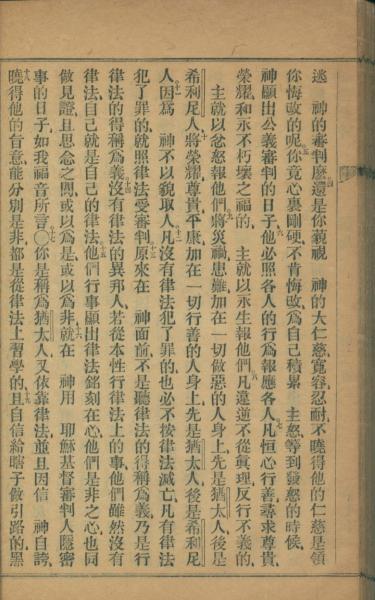 逃　神的審判麽還是你藐視　神的大仁慈寬容忍耐不曉得他的仁慈是領
你悔改的呢你竟心裏剛硬不肯悔改爲自己積累　主怒等到發怒的時候
神顯出公義審判的日子他必照各人的行爲報應各人凡恒心行善尋求尊貴
榮耀和永不朽壞之福的　主就以永生報他們凡違逆不從眞理反行不義的
主就以忿怒報他們將災禍患難加在一切做惡的人身上先是猶太人後是
希利尼人將榮耀尊貴平康加在一切行善的人身上先是猶太人後是希利尼
人因爲　神不以貌取人凡沒有律法犯了罪的也必不按律法滅亡凡有律法
犯了罪的就照律法受審判原來在　神面前不是聽律法的得稱爲義乃是行
律法的得稱爲義沒有律法的異邦人若從本性行律法上的事他們雖然沒有
律法自己就是自己的律法他們行事顯出律法銘刻在心他們是非之心也同
做見證且思念之間或以爲是或以爲非就在　神用　耶穌基督審判人隱密
事的日子如我福音所言〇你是稱爲猶太人又依靠律法並且因信　神自誇
曉得他的旨意能分別是非都是從律法上習學的且自信給瞎子做引路的黑